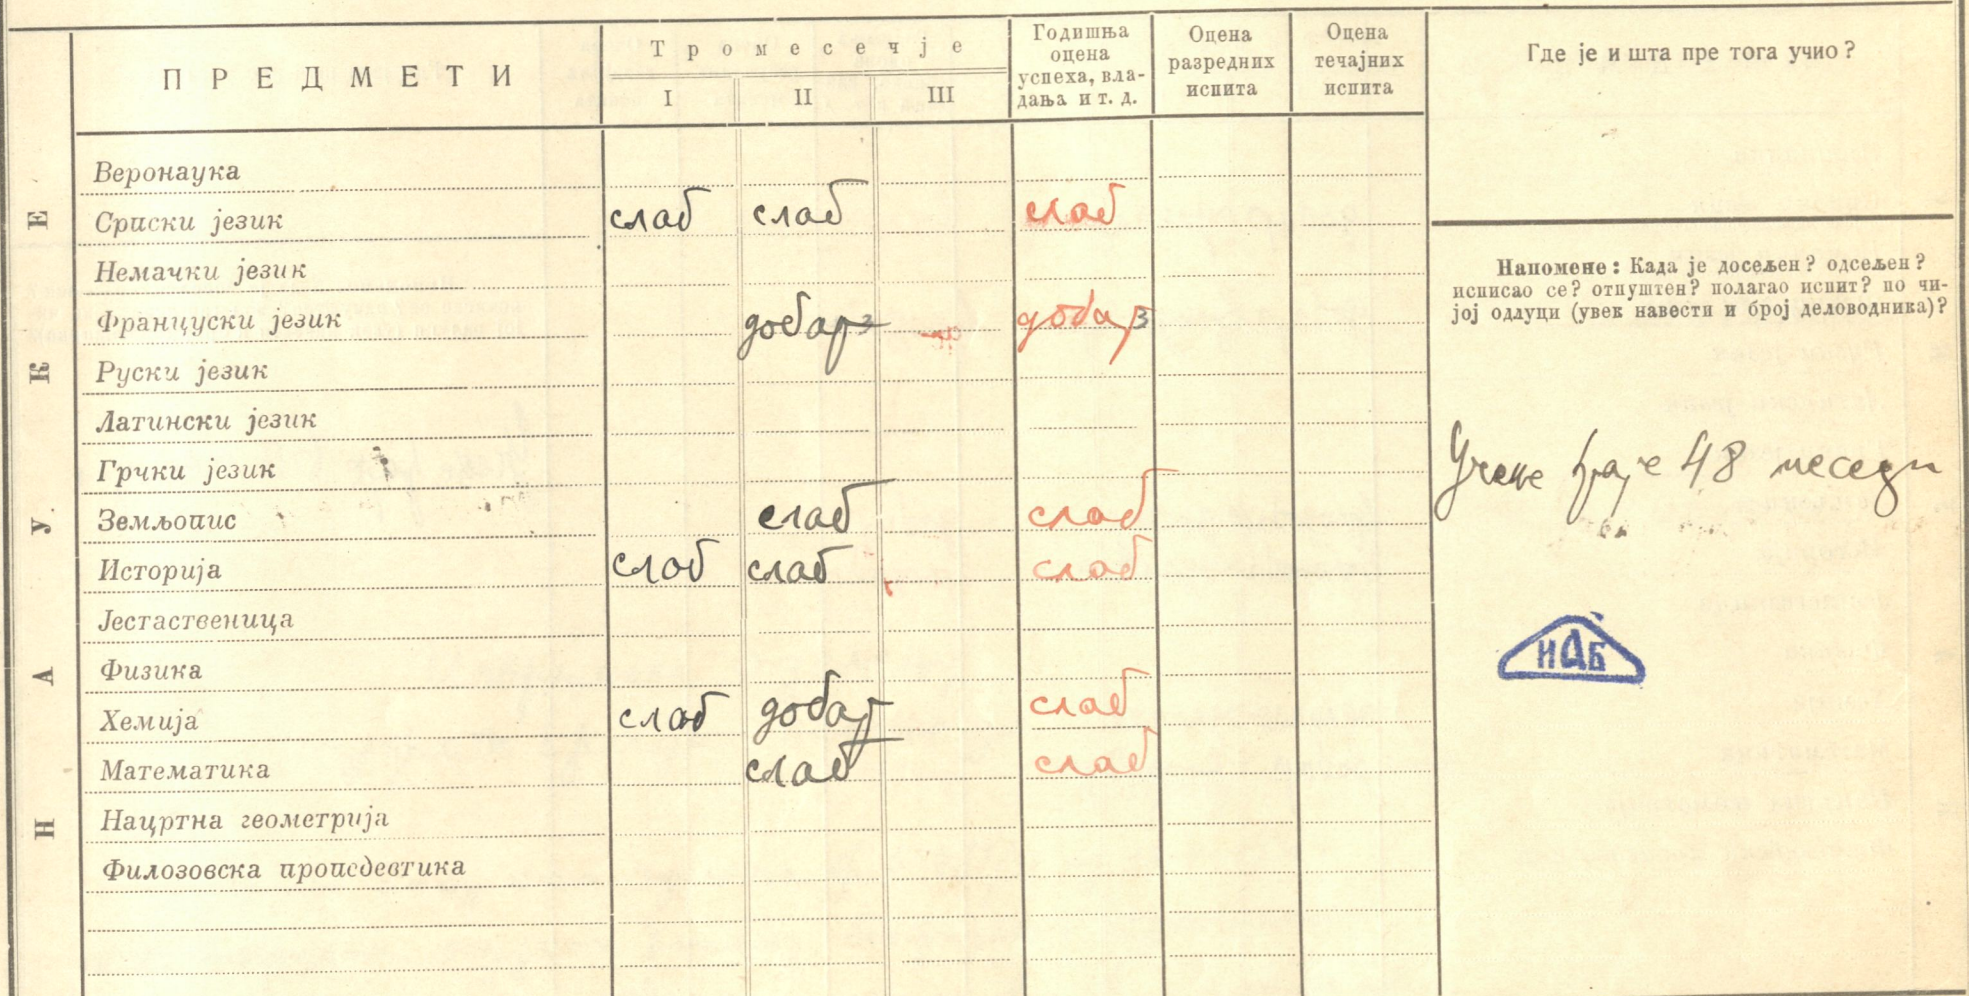 НАУКЕ
ПРЕДМЕТИ
Тромесечје
I II III
Годишња
оцена
успеха, вла-
дања и т. д.
Оцена
разредних
испита
Оцена
течајних
испита
Где је и шта пре тога учио?
Веронаука
Српски језик слаб слаб слаб
Немачки језик
Француски језик добар 3 добар 3
Руски језик
Латински језик
Грчки језик
Земљопис слаб слаб
Историја слаб слаб слаб
Јестаственица
Физика
Хемија слаб добар слаб
Математика слаб слаб
Нацртна геометрија
Филозовска пропедевтика
Напомене: Када је досељен? одсељен?
исписао се? отпуштен? полагао испит? по чи-
јој одлуци (увек навести и број деловодника)?
Учење траје 48 месеци
ИАБ